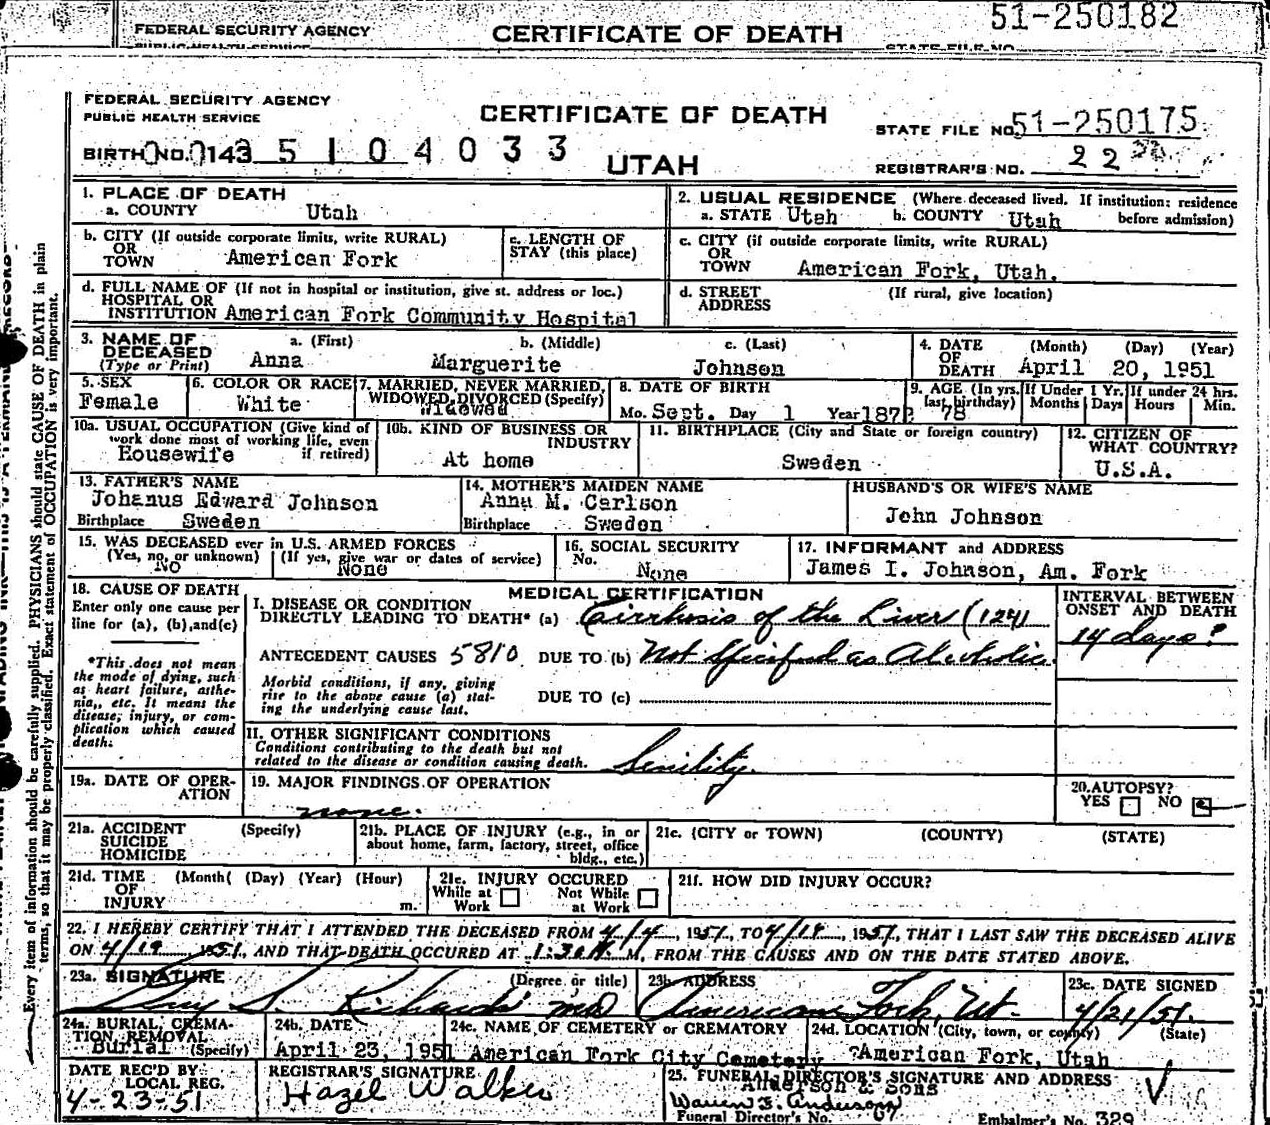 FEDERAL SECURITY AGENCY
CERTIFICATE OF DEATH
51-250182
PUBLIC HEALTH SERVICE
STATE FILE NO.
FEDERAL SECURITY AGENCY
PUBLIC HEALTH SERVICE
CERTIFICATE OF DEATH
STATE FILE NO. 51-250175
BIRTH NO. 143 5 1 0 4 0 3 3
UTAH
REGISTRAR'S NO. 22
1. PLACE OF DEATH
a. COUNTY Utah
2. USUAL RESIDENCE (Where deceased lived. If institution: residence before admission)
a. STATE Utah b. COUNTY Utah
b. CITY (If outside corporate limits, write RURAL)
OR
TOWN American Fork
c. LENGTH OF
STAY (this place)
c. CITY (if outside corporate limits, write RURAL)
OR
TOWN American Fork, Utah.
d. FULL NAME OF (If not in hospital or institution, give st. address or loc.)
HOSPITAL OR
INSTITUTION American Fork Community Hospital
d. STREET
ADDRESS
(If rural, give location)
3. NAME OF
DECEASED
(Type or Print)
a. (First) b. (Middle) c. (Last)
Anna Marguerite Johnson
4. DATE
OF
DEATH
(Month) (Day) (Year)
April 20, 1951
5. SEX
Female
6. COLOR OR RACE
White
7. MARRIED, NEVER MARRIED,
WIDOWED, DIVORCED (Specify)
Widowed
8. DATE OF BIRTH
Mo. Sept. Day 1 Year
9. AGE (In yrs. last birthday)
78
If Under 1 Yr.
Months Days
If under 24 hrs.
Hours Min.
10a. USUAL OCCUPATION (Give kind of
work done most of working life, even
if retired)
Housewife
10b. KIND OF BUSINESS OR
INDUSTRY
At home
11. BIRTHPLACE (City and State or foreign country)
Sweden
12. CITIZEN OF
WHAT COUNTRY?
U.S.A.
13. FATHER'S NAME
Johanus Edward Johnson
Birthplace Sweden
14. MOTHER'S MAIDEN NAME
Anna M. Carlson
Birthplace Sweden
HUSBAND'S OR WIFE'S NAME
John Johnson
15. WAS DECEASED ever in U.S. ARMED FORCES
(Yes, no, or unknown) (If yes, give war or dates of service)
No None
16. SOCIAL SECURITY
No.
None
17. INFORMANT and ADDRESS
James I. Johnson, Am. Fork
18. CAUSE OF DEATH
Enter only one cause per
line for (a), (b), and (c)
*This does not mean
the mode of dying, such
as heart failure, asthe-
nia, etc. It means the
disease, injury, or com-
plication which caused
death.
MEDICAL CERTIFICATION
I. DISEASE OR CONDITION
DIRECTLY LEADING TO DEATH* (a) Cirrhosis of the Liver (124)
ANTECEDENT CAUSES 5810 DUE TO (b) Not Specified as Alcoholic.
Morbid conditions, if any, giving
rise to the above cause (a) stat-
ing the underlying cause last.
DUE TO (c)
INTERVAL BETWEEN
ONSET AND DEATH
14 days?
II. OTHER SIGNIFICANT CONDITIONS
Conditions contributing to the death but not
related to the disease or condition causing death.
Senility.
19a. DATE OF OPER-
ATION
19. MAJOR FINDINGS OF OPERATION
none.
20. AUTOPSY?
YES NO
21a. ACCIDENT
SUICIDE
HOMICIDE
(Specify)
21b. PLACE OF INJURY (e.g., in or
about home, farm, factory, street, office
bldg., etc.)
21c. (CITY or TOWN) (COUNTY) (STATE)
21d. TIME
OF
INJURY
(Month( (Day) (Year) (Hour)
m.
21e. INJURY OCCURED
While at
Work
Not While
at Work
21f. HOW DID INJURY OCCUR?
22. I HEREBY CERTIFY THAT I ATTENDED THE DECEASED FROM 4/4, 1951, TO 4/19, 1951, THAT I LAST SAW THE DECEASED ALIVE
ON 4/19 1951, AND THAT DEATH OCCURED AT 1:30 M, FROM THE CAUSES AND ON THE DATE STATED ABOVE.
23a. SIGNATURE
(Degree or title)
Guy S. Richards MD
23b. ADDRESS
American Fork, Ut.
23c. DATE SIGNED
4/21/51.
24a. BURIAL, CREMA-
TION, REMOVAL
Burial (Specify)
24b. DATE
April 23, 1951
24c. NAME OF CEMETERY or CREMATORY
American Fork City Cemetery
24d. LOCATION (City, town, or county) (State)
American Fork, Utah
DATE REC'D BY
LOCAL REG.
4-23-51
REGISTRAR'S SIGNATURE
Hazel Walker
25. FUNERAL DIRECTOR'S SIGNATURE AND ADDRESS
Anderson & Sons
Warren E. Anderson
Funeral Director's No. 67
Embalmer's No. 329
Every item of information should be carefully supplied. PHYSICIANS should state CAUSE OF DEATH in plain
terms, so that it may be properly classified. Exact statement of OCCUPATION is very important.